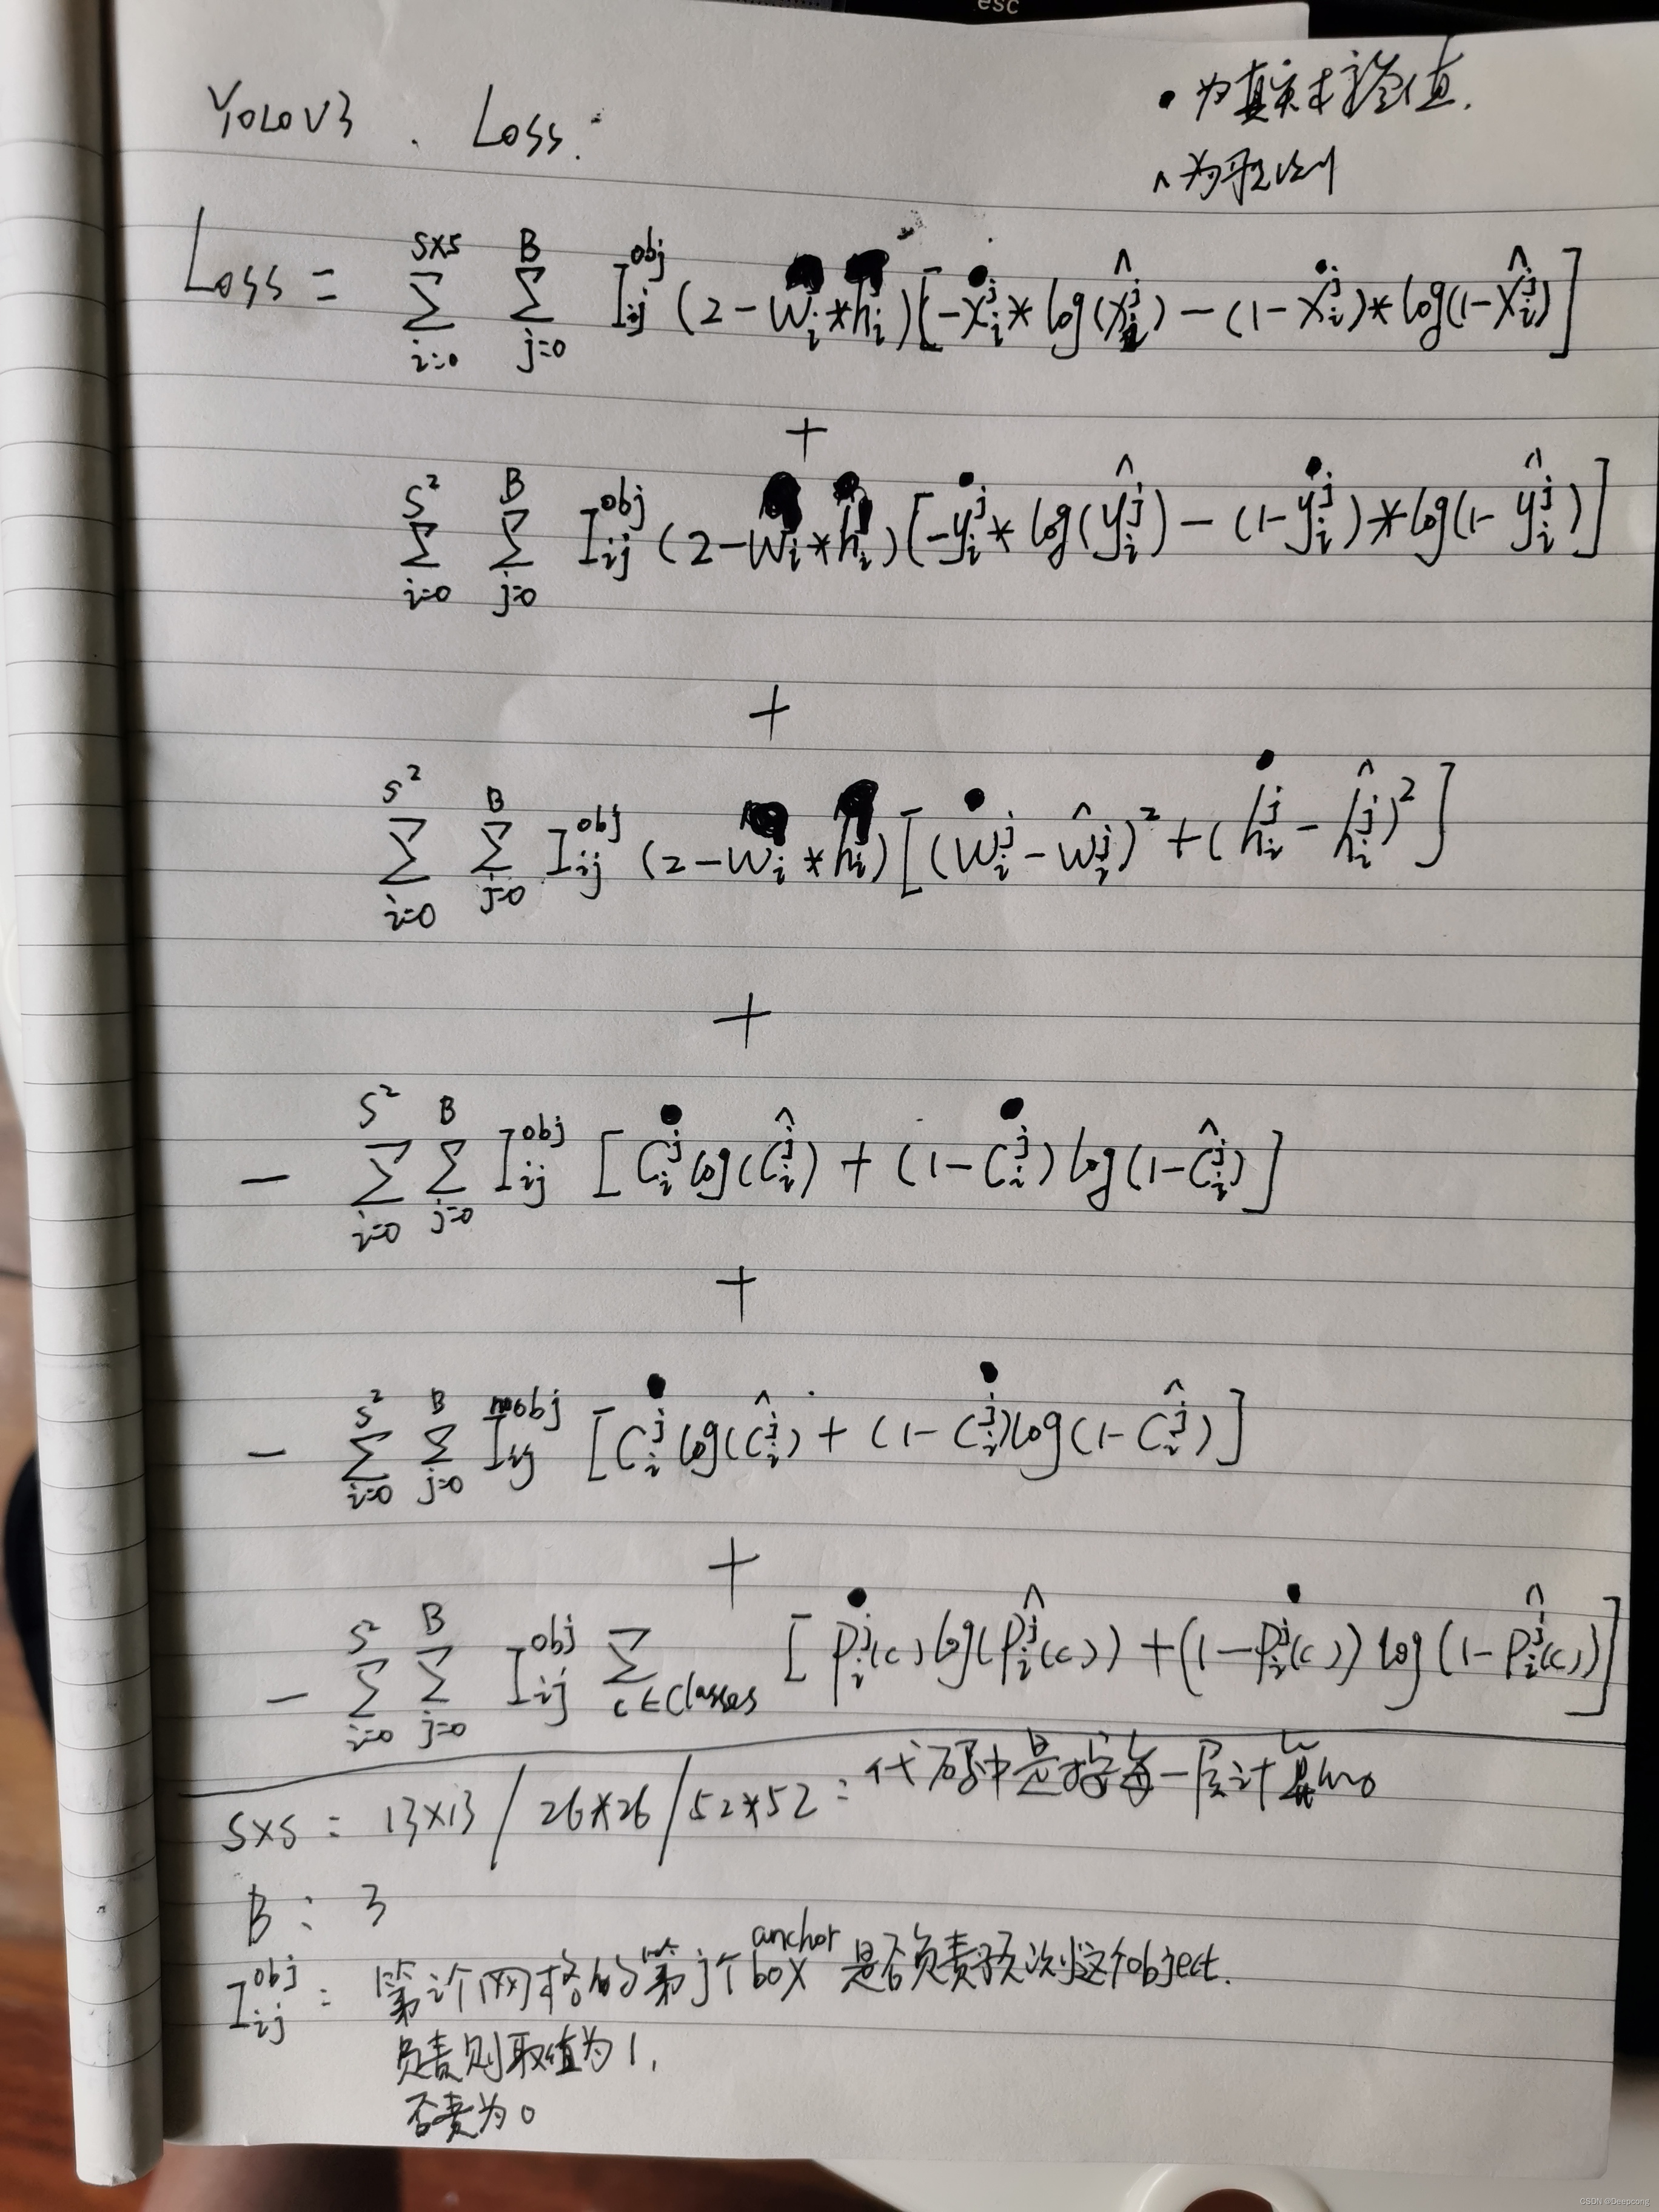 esc
YOLOV3 . Loss:
• 为真实标签值.
^ 为预测
Loss = Σ_{i=0}^{S×S} Σ_{j=0}^{B} I_{ij}^{obj} (2 - w_i * h_i) [-ẋ_i^j * log(x̂_i^j) - (1 - ẋ_i^j) * log(1 - x̂_i^j)]
+
Σ_{i=0}^{S²} Σ_{j=0}^{B} I_{ij}^{obj} (2 - w_i * h_i) [-ẏ_i^j * log(ŷ_i^j) - (1 - ẏ_i^j) * log(1 - ŷ_i^j)]
+
Σ_{i=0}^{S²} Σ_{j=0}^{B} I_{ij}^{obj} (2 - w_i * h_i) [(ẇ_i^j - ŵ_i^j)² + (ḣ_i^j - ĥ_i^j)²]
+
- Σ_{i=0}^{S²} Σ_{j=0}^{B} I_{ij}^{obj} [Ċ_i^j log(Ĉ_i^j) + (1 - Ċ_i^j) log(1 - Ĉ_i^j)]
+
- Σ_{i=0}^{S²} Σ_{j=0}^{B} I_{ij}^{noobj} [Ċ_i^j log(Ĉ_i^j) + (1 - Ċ_i^j) log(1 - Ĉ_i^j)]
+
- Σ_{i=0}^{S²} Σ_{j=0}^{B} I_{ij}^{obj} Σ_{c∈Classes} [ṗ_i^j(c) log(p̂_i^j(c)) + (1 - ṗ_i^j(c)) log(1 - p̂_i^j(c))]
S×S : 13×13 / 26*26 / 52*52 : 代码中是按每一层计算
B : 3
anchor
I_{ij}^{obj} : 第i个网格的第j个box 是否负责预测这个object.
负责则取值为1,
否责为0
CSDN @Deepcong